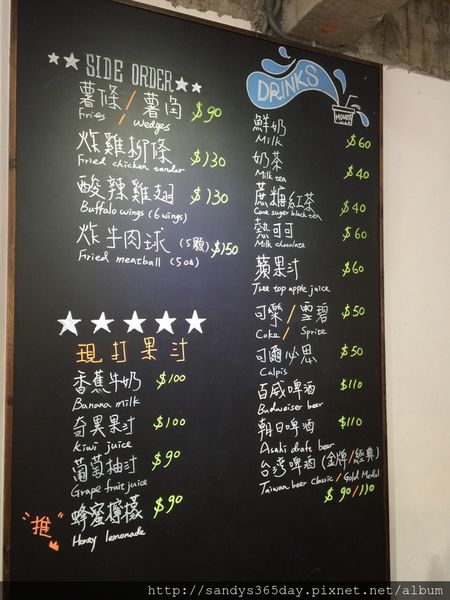 SIDE ORDER
薯條 / 薯角 $90
Fries / Wedges
炸雞柳條 $130
Fried chicken tender
酸辣雞翅 $130
Buffalo wings (6 wings)
炸牛肉球 (5顆) $150
Fried meatball (5oz)
現打果汁
香蕉牛奶 $100
Banana milk
奇異果汁 $100
Kiwi juice
葡萄柚汁 $90
Grape fruit juice
"推" 蜂蜜檸檬 $90
Honey lemonade
DRINKS
鮮奶 $60
Milk
奶茶 $40
Milk tea
蔗糖紅茶 $40
Cane suger black tea
熱可可 $60
Milk chocolate
蘋果汁 $60
Tree top apple juice
可樂 / 雪碧 $50
Coke / Sprite
可爾必思 $50
Calpis
百威啤酒 $110
Budweiser beer
朝日啤酒 $110
Asahi drafe beer
台灣啤酒 (金牌/經典)
Taiwan beer Classic / Gold Medal
$90/110
http://sandys365day.pixnet.net/album